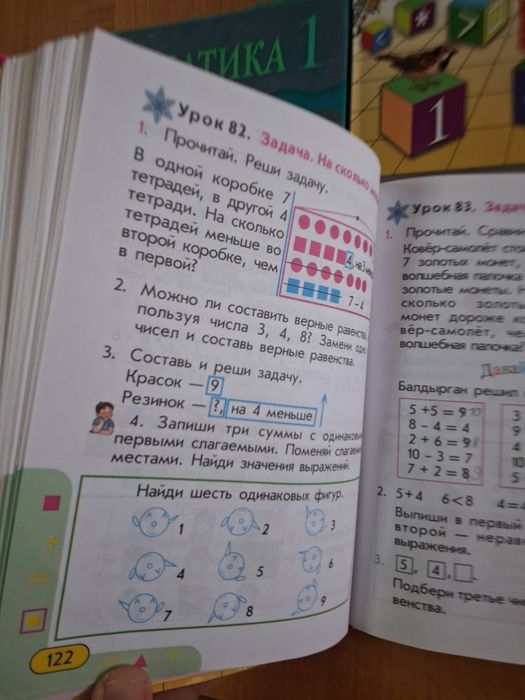 АТИКА 1
1
Урок 82. Задача. На сколько
1. Прочитай. Реши задачу.
В одной коробке 7
тетрадей, в другой 4
тетради. На сколько
тетрадей меньше во
второй коробке, чем
в первой?
4, на 3
7 – 4
2. Можно ли составить верные равенства,
пользуя числа 3, 4, 8? Замени одно
чисел и составь верные равенства.
3. Составь и реши задачу.
Красок — 9
Резинок — ?, на 4 меньше
4. Запиши три суммы с одинаковым
первыми слагаемыми. Поменяй слагаемые
местами. Найди значения выражений.
Найди шесть одинаковых фигур.
1 2 3
4 5 6
7 8 9
122
Урок 83. Задача
1. Прочитай. Сравни
Ковёр-самолёт
7 золотых монет,
волшебная палочка
золотые монеты.
сколько
монет дороже
вёр-самолёт,
волшебная палочка?
Давай
Балдырган решил
5 + 5 = 9
8 – 4 = 4
2 + 6 = 9
10 – 3 = 7
7 + 2 = 8
3
9
4
10
5
2. 5 + 4 6 < 8 4 =
Выпиши в первый
второй —
выражения.
3. 5, 4,
Подбери третье
венства.